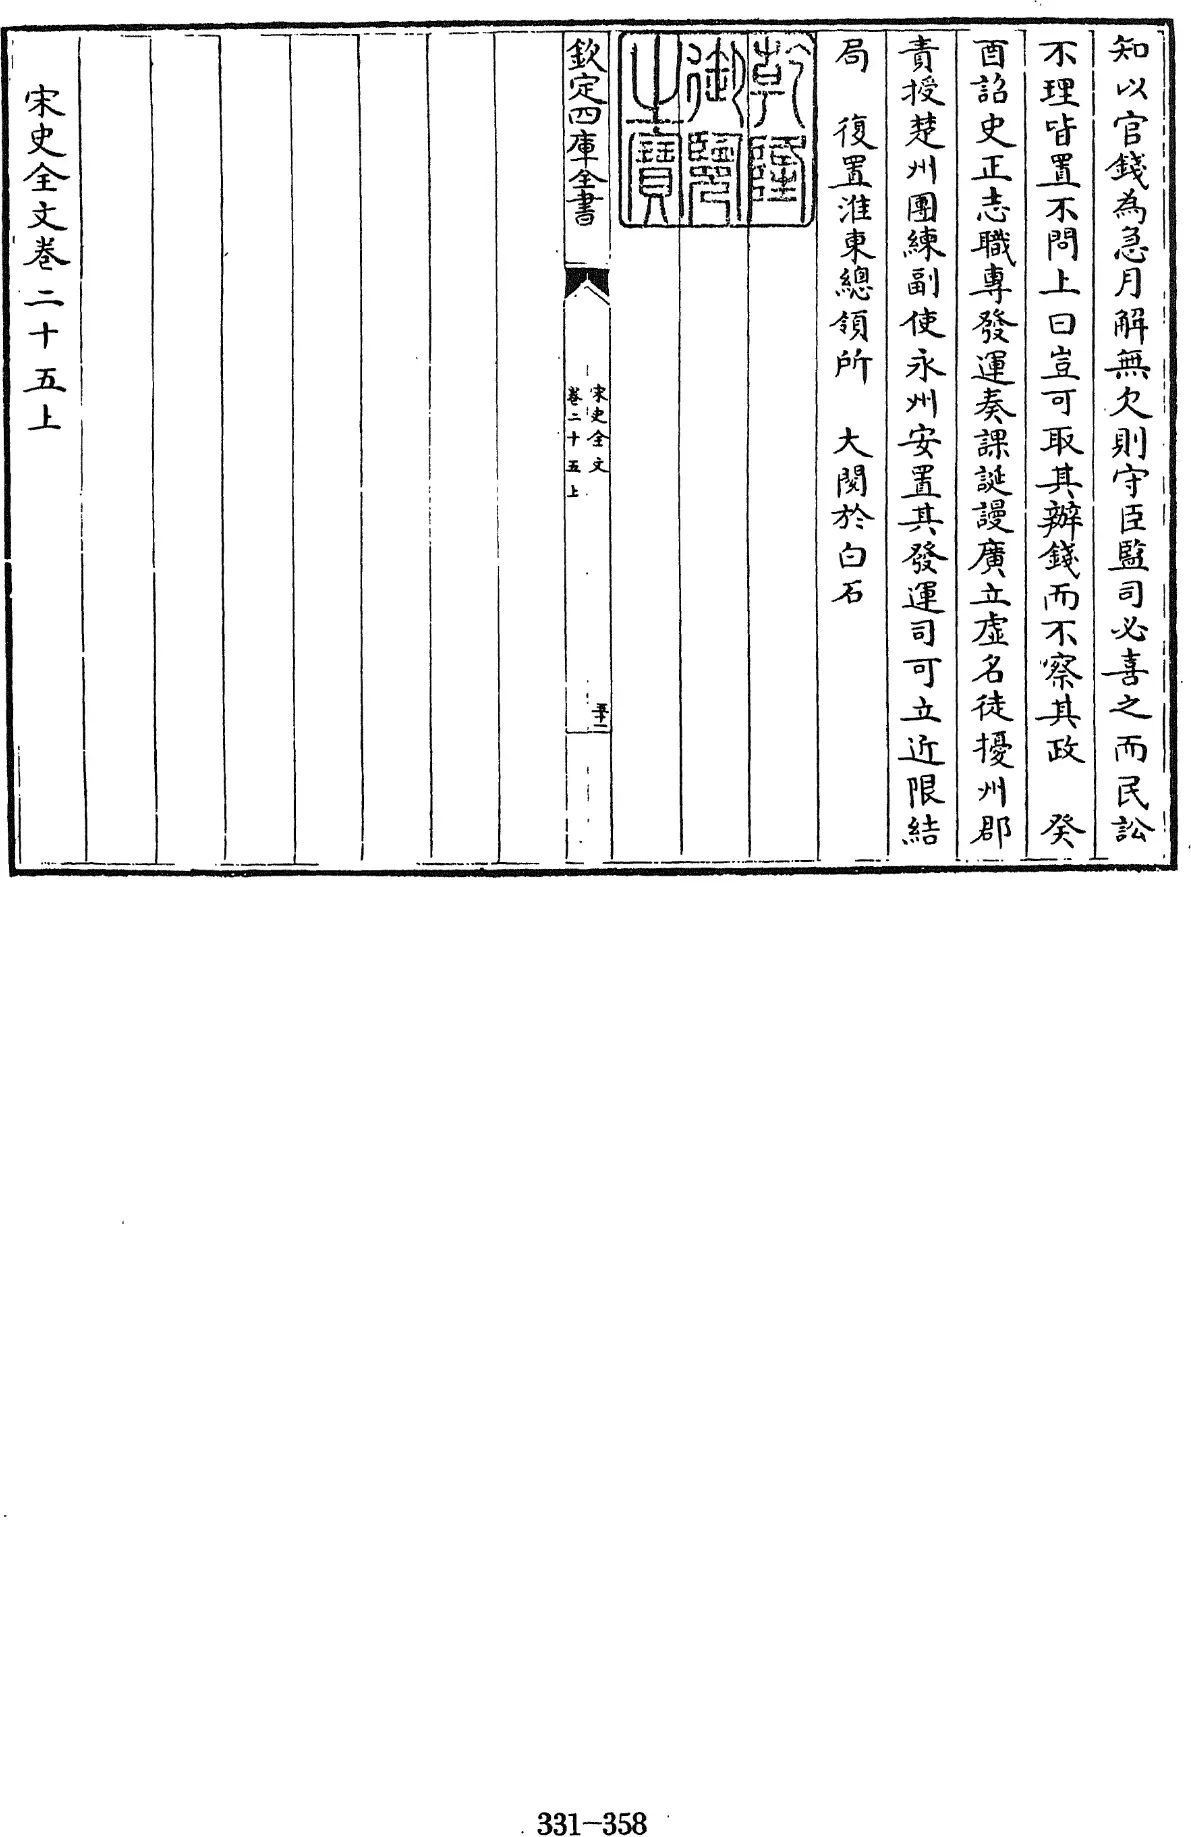 知以官錢為急月解無欠則守臣監司必喜之而民訟
不理皆置不問上曰豈可取其辦錢而不察其政　癸
酉詔史正志職專發運奏課誕謾廣立虛名徒擾州郡
責授楚州團練副使永州安置其發運司可立近限結
局　復置淮東總領所　大閱於白石
乾隆御覽之寶
欽定四庫全書
宋史全文
卷二十五上
五十一
宋史全文卷二十五上
331-358